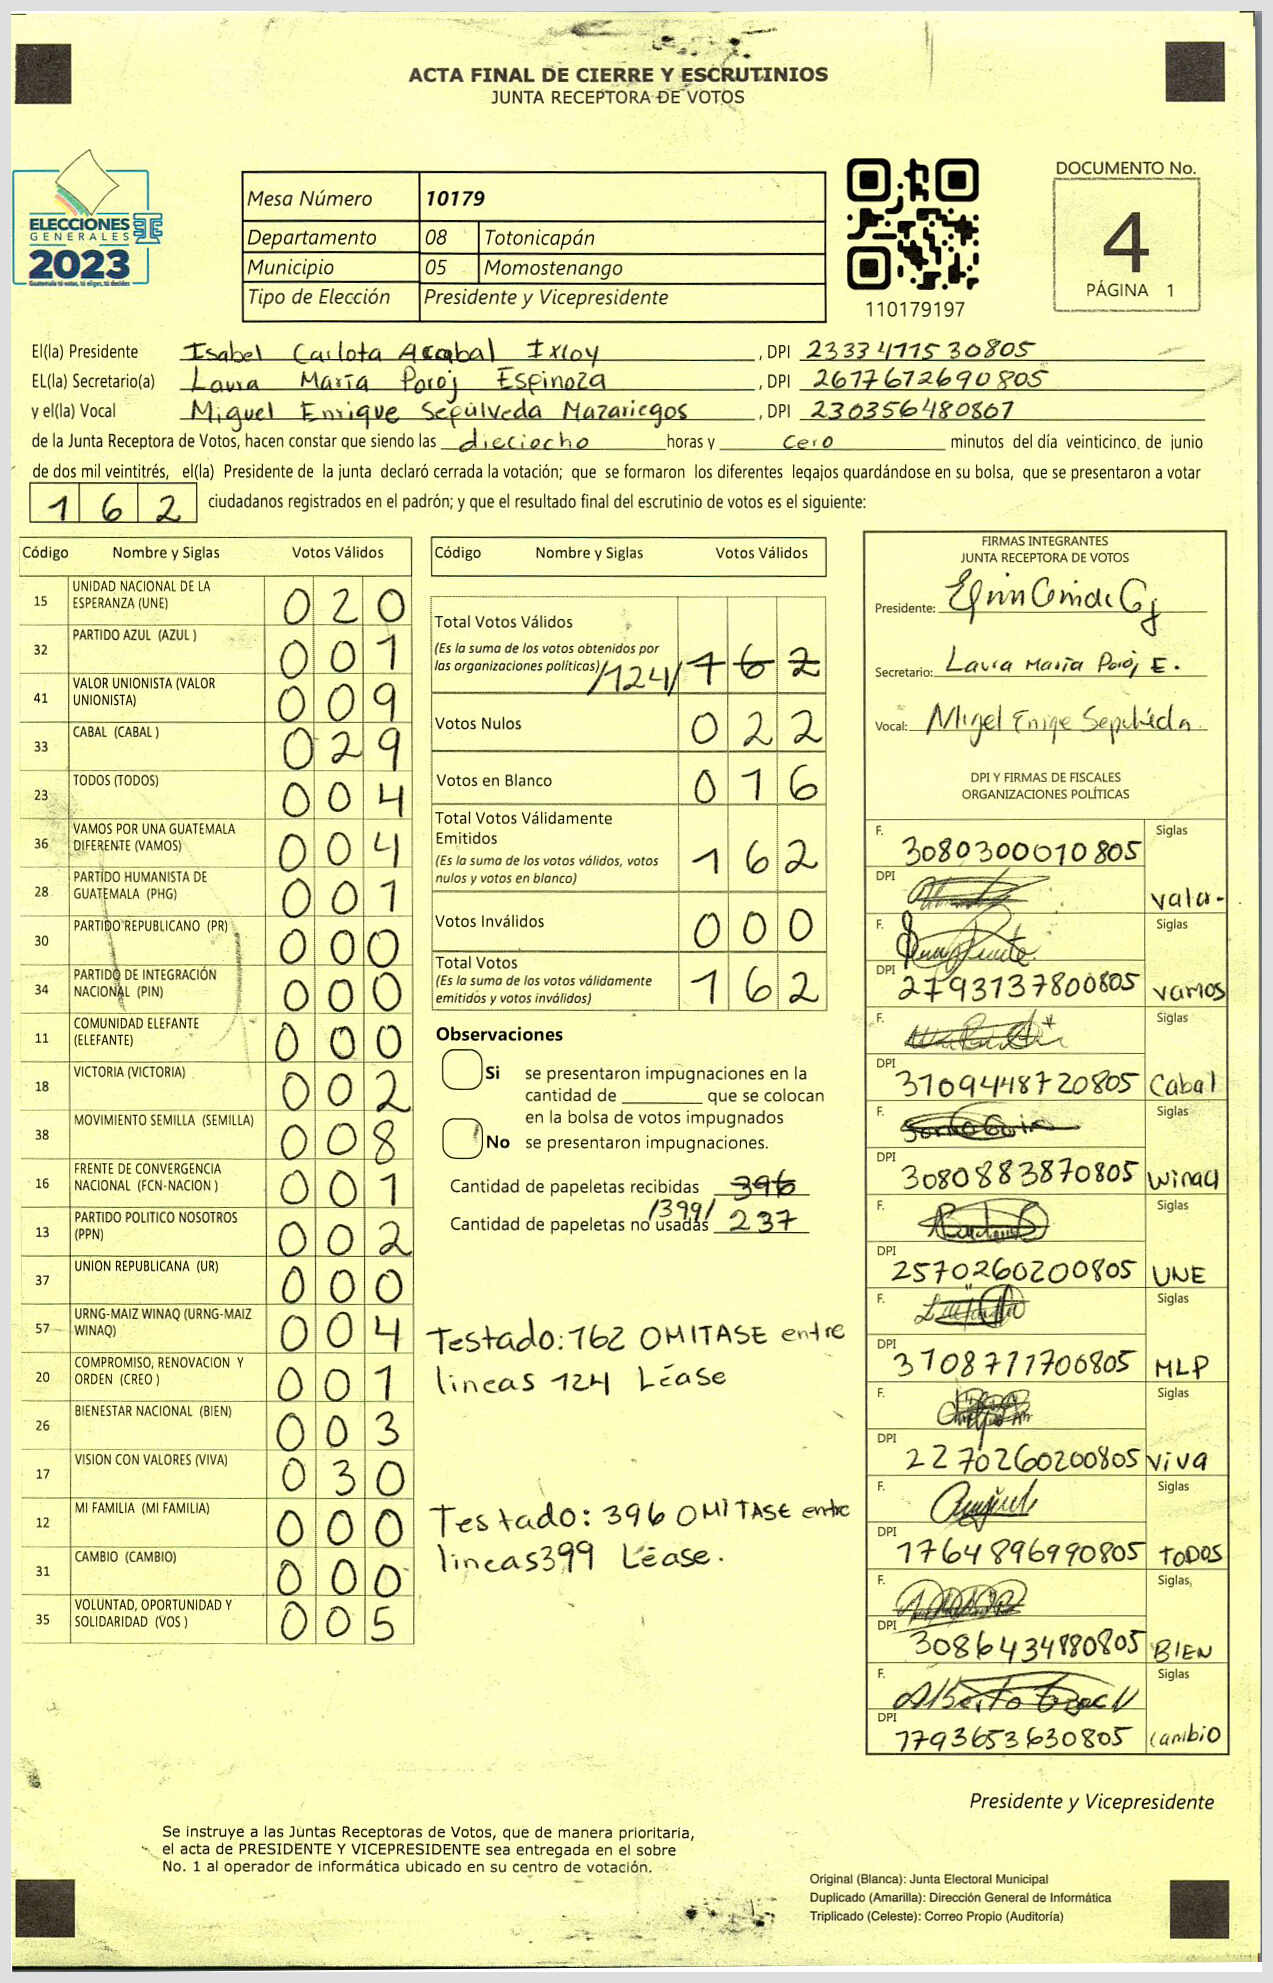 ACTA FINAL DE CIERRE Y ESCRUTINIOS
JUNTA RECEPTORA DE VOTOS
ELECCIONES
GENERALES
2023
Guatemala tú votas, tú eliges, tú decides
Mesa Número 10179
Departamento 08 Totonicapán
Municipio 05 Momostenango
Tipo de Elección Presidente y Vicepresidente
110179197
DOCUMENTO No.
4
PÁGINA 1
El(la) Presidente Isabel Carlota Acabal Ixloy, DPI 2333477530805
EL(la) Secretario(a) Laura María Poroj Espinoza, DPI 2617672690805
y el(la) Vocal Miguel Enrique Sepúlveda Mazariegos, DPI 230356480807
de la Junta Receptora de Votos, hacen constar que siendo las dieciocho horas y cero minutos del día veinticinco de junio
de dos mil veintitrés, el(la) Presidente de la junta declaró cerrada la votación; que se formaron los diferentes legajos quardándose en su bolsa, que se presentaron a votar
162 ciudadanos registrados en el padrón; y que el resultado final del escrutinio de votos es el siguiente:
Código Nombre y Siglas Votos Válidos
15 UNIDAD NACIONAL DE LA ESPERANZA (UNE) 020
32 PARTIDO AZUL (AZUL ) 001
41 VALOR UNIONISTA (VALOR UNIONISTA) 009
33 CABAL (CABAL ) 029
23 TODOS (TODOS) 004
36 VAMOS POR UNA GUATEMALA DIFERENTE (VAMOS) 004
28 PARTIDO HUMANISTA DE GUATEMALA (PHG) 001
30 PARTIDO REPUBLICANO (PR) 000
34 PARTIDO DE INTEGRACIÓN NACIONAL (PIN) 000
11 COMUNIDAD ELEFANTE (ELEFANTE) 000
18 VICTORIA (VICTORIA) 002
38 MOVIMIENTO SEMILLA (SEMILLA) 008
16 FRENTE DE CONVERGENCIA NACIONAL (FCN-NACION ) 001
13 PARTIDO POLITICO NOSOTROS (PPN) 002
37 UNION REPUBLICANA (UR) 000
57 URNG-MAIZ WINAQ (URNG-MAIZ WINAQ) 004
20 COMPROMISO, RENOVACION Y ORDEN (CREO ) 001
26 BIENESTAR NACIONAL (BIEN) 003
17 VISION CON VALORES (VIVA) 030
12 MI FAMILIA (MI FAMILIA) 000
31 CAMBIO (CAMBIO) 000
35 VOLUNTAD, OPORTUNIDAD Y SOLIDARIDAD (VOS ) 005
Código Nombre y Siglas Votos Válidos
Total Votos Válidos
(Es la suma de los votos obtenidos por
las organizaciones políticas) /124/ 162
Votos Nulos 022
Votos en Blanco 016
Total Votos Válidamente
Emitidos
(Es la suma de los votos válidos, votos
nulos y votos en blanco) 162
Votos Inválidos 000
Total Votos
(Es la suma de los votos válidamente
emitidos y votos inválidos) 162
Observaciones
Si se presentaron impugnaciones en la
cantidad de ________ que se colocan
en la bolsa de votos impugnados
No se presentaron impugnaciones.
Cantidad de papeletas recibidas 396
/399/
Cantidad de papeletas no usadas 237
Testado: 162 OMITASE entre
lineas 124 Léase
Testado: 396 OMITASE entre
lineas 399 Léase.
FIRMAS INTEGRANTES
JUNTA RECEPTORA DE VOTOS
Presidente:
Secretario: Laura María Poroj E.
Vocal: Migel Enriqe Sepulveda
DPI Y FIRMAS DE FISCALES
ORGANIZACIONES POLÍTICAS
F. Siglas
3080300010805
DPI Valor
F. Siglas
DPI 2793137800805 Vamos
F. Siglas
DPI 3709448720805 Cabal
F. Siglas
DPI 3080883870805 Winaq
F. Siglas
DPI 2570260200805 UNE
F. Siglas
DPI 3708711706805 MLP
F. Siglas
DPI 2270260200805 Viva
F. Siglas
DPI 1764896990805 TODOS
F. Siglas
DPI 3086434880805 BIEN
F. Siglas
DPI 1793653630805 Cambio
Presidente y Vicepresidente
Se instruye a las Juntas Receptoras de Votos, que de manera prioritaria,
el acta de PRESIDENTE Y VICEPRESIDENTE sea entregada en el sobre
No. 1 al operador de informática ubicado en su centro de votación.
Original (Blanca): Junta Electoral Municipal
Duplicado (Amarilla): Dirección General de Informática
Triplicado (Celeste): Correo Propio (Auditoría)